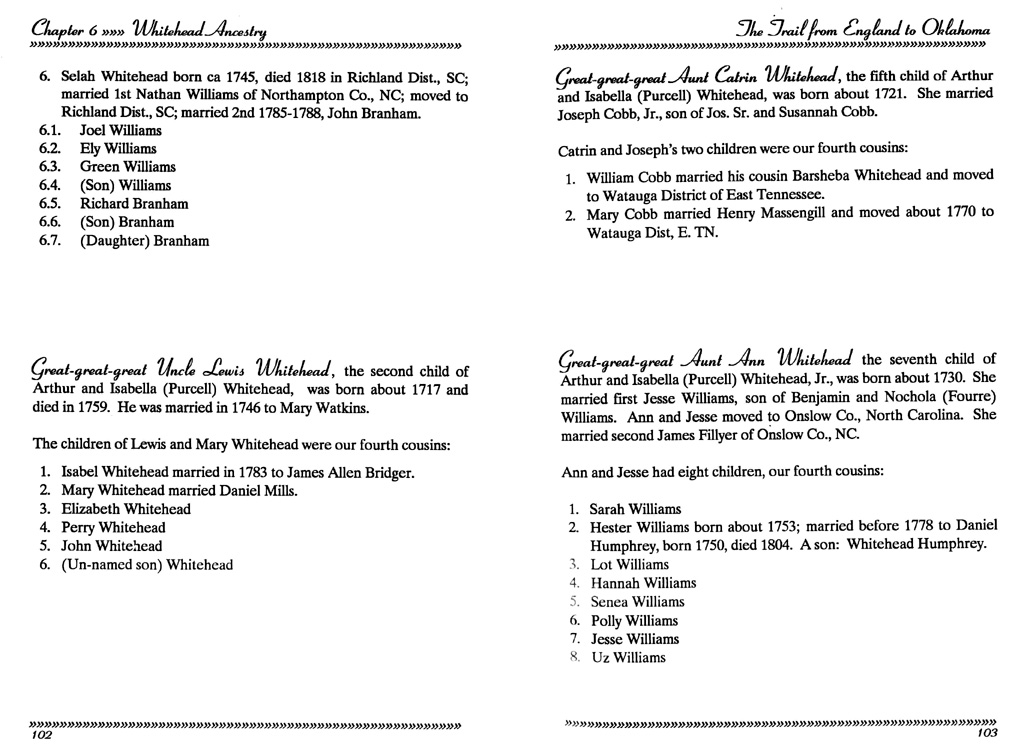 Chapter 6 »»» Whitehead Ancestry
»»»»»»»»»»»»»»»»»»»»»»»»»»»»»»»»»»»»»»»»»»»»»»»»»»»»»»»»
6. Selah Whitehead born ca 1745, died 1818 in Richland Dist., SC;
married 1st Nathan Williams of Northampton Co., NC; moved to
Richland Dist., SC; married 2nd 1785-1788, John Branham.
6.1. Joel Williams
6.2. Ely Williams
6.3. Green Williams
6.4. (Son) Williams
6.5. Richard Branham
6.6. (Son) Branham
6.7. (Daughter) Branham
Great-great-great Uncle Lewis Whitehead, the second child of
Arthur and Isabella (Purcell) Whitehead, was born about 1717 and
died in 1759. He was married in 1746 to Mary Watkins.
The children of Lewis and Mary Whitehead were our fourth cousins:
1. Isabel Whitehead married in 1783 to James Allen Bridger.
2. Mary Whitehead married Daniel Mills.
3. Elizabeth Whitehead
4. Perry Whitehead
5. John Whitehead
6. (Un-named son) Whitehead
»»»»»»»»»»»»»»»»»»»»»»»»»»»»»»»»»»»»»»»»»»»»»»»»»»»»»»»»
102
The Trail from England to Oklahoma
»»»»»»»»»»»»»»»»»»»»»»»»»»»»»»»»»»»»»»»»»»»»»»»»»»»»»»»»
Great-great-great Aunt Catrin Whitehead, the fifth child of Arthur
and Isabella (Purcell) Whitehead, was born about 1721. She married
Joseph Cobb, Jr., son of Jos. Sr. and Susannah Cobb.
Catrin and Joseph's two children were our fourth cousins:
1. William Cobb married his cousin Barsheba Whitehead and moved
to Watauga District of East Tennessee.
2. Mary Cobb married Henry Massengill and moved about 1770 to
Watauga Dist, E. TN.
Great-great-great Aunt Ann Whitehead the seventh child of
Arthur and Isabella (Purcell) Whitehead, Jr., was born about 1730. She
married first Jesse Williams, son of Benjamin and Nochola (Fourre)
Williams. Ann and Jesse moved to Onslow Co., North Carolina. She
married second James Fillyer of Onslow Co., NC.
Ann and Jesse had eight children, our fourth cousins:
1. Sarah Williams
2. Hester Williams born about 1753; married before 1778 to Daniel
Humphrey, born 1750, died 1804. A son: Whitehead Humphrey.
3. Lot Williams
4. Hannah Williams
5. Senea Williams
6. Polly Williams
7. Jesse Williams
8. Uz Williams
»»»»»»»»»»»»»»»»»»»»»»»»»»»»»»»»»»»»»»»»»»»»»»»»»»»»»»»»
103